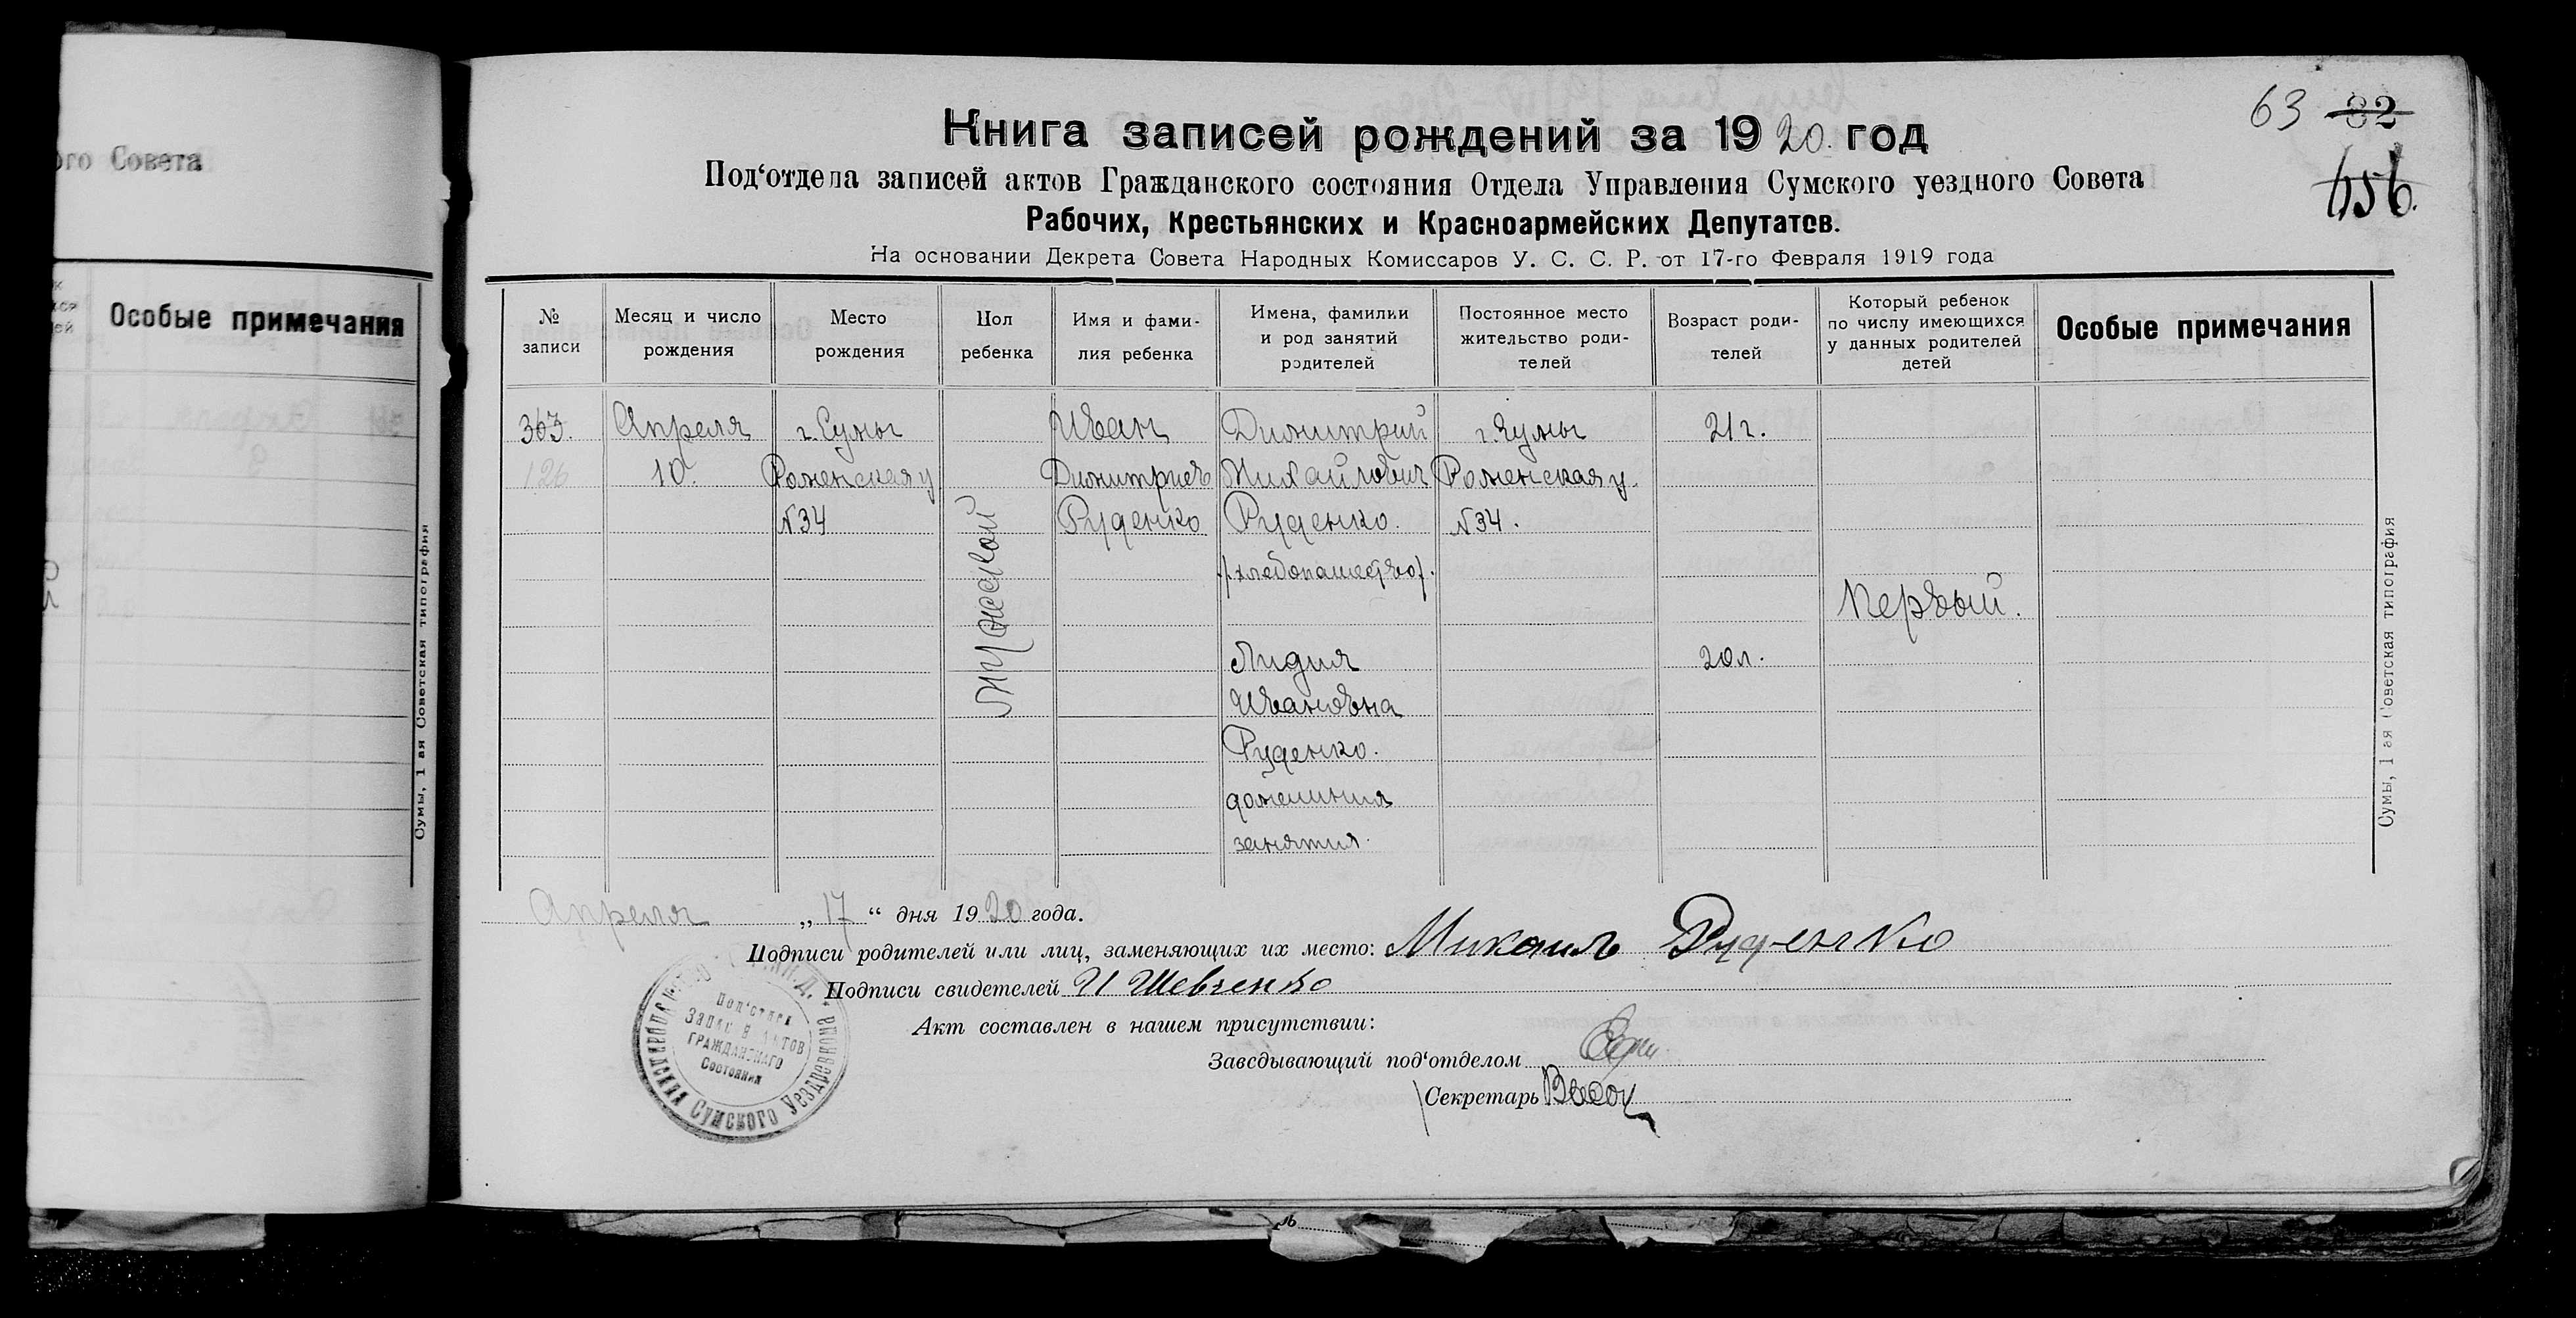 ого Совета
Особые примечания
Сумы, 1 ая Советская типография
63 82
656.
Книга записей рождений за 1920. год
Под‘отдела записей актов Гражданского состояния Отдела Управления Сумского уездного Совета
Рабочих, Крестьянских и Красноармейских Депутатов.
На основании Декрета Совета Народных Комиссаров У. С. С. Р. от 17-го Февраля 1919 года
№ записи
Месяц и число рождения
Место рождения
Пол ребенка
Имя и фами-
лия ребенка
Имена, фамилии
и род занятий
родителей
Постоянное место
жительство роди-
телей
Возраст роди-
телей
Который ребенок
по числу имеющихся
у данных родителей
детей
Особые примечания
363.
126
Апреля
10.
г. Сумы
Роменская у
№34
мужской
Иван
Димитриев
Руденко
Димитрий
Михайлович
Руденко.
/хлебопашество/.
Лидия
Ивановна
Руденко.
домашния
занятия.
г. Сумы
Роменская у.
№34.
21 г.
20 л.
Первый.
Сумы, 1 ая Советская типография
Апреля „17“ дня 1920 года.
Подписи родителей или лиц, заменяющих их место: Михаил Руденко
Подписи свидетелей И Шевченко
Акт составлен в нашем присутствии:
Заведывающий под‘отделом
Секретарь
Под‘отдел
Записи Актов
ГРАЖДАНСКАГО
Состояния
Сумского Уездревкома